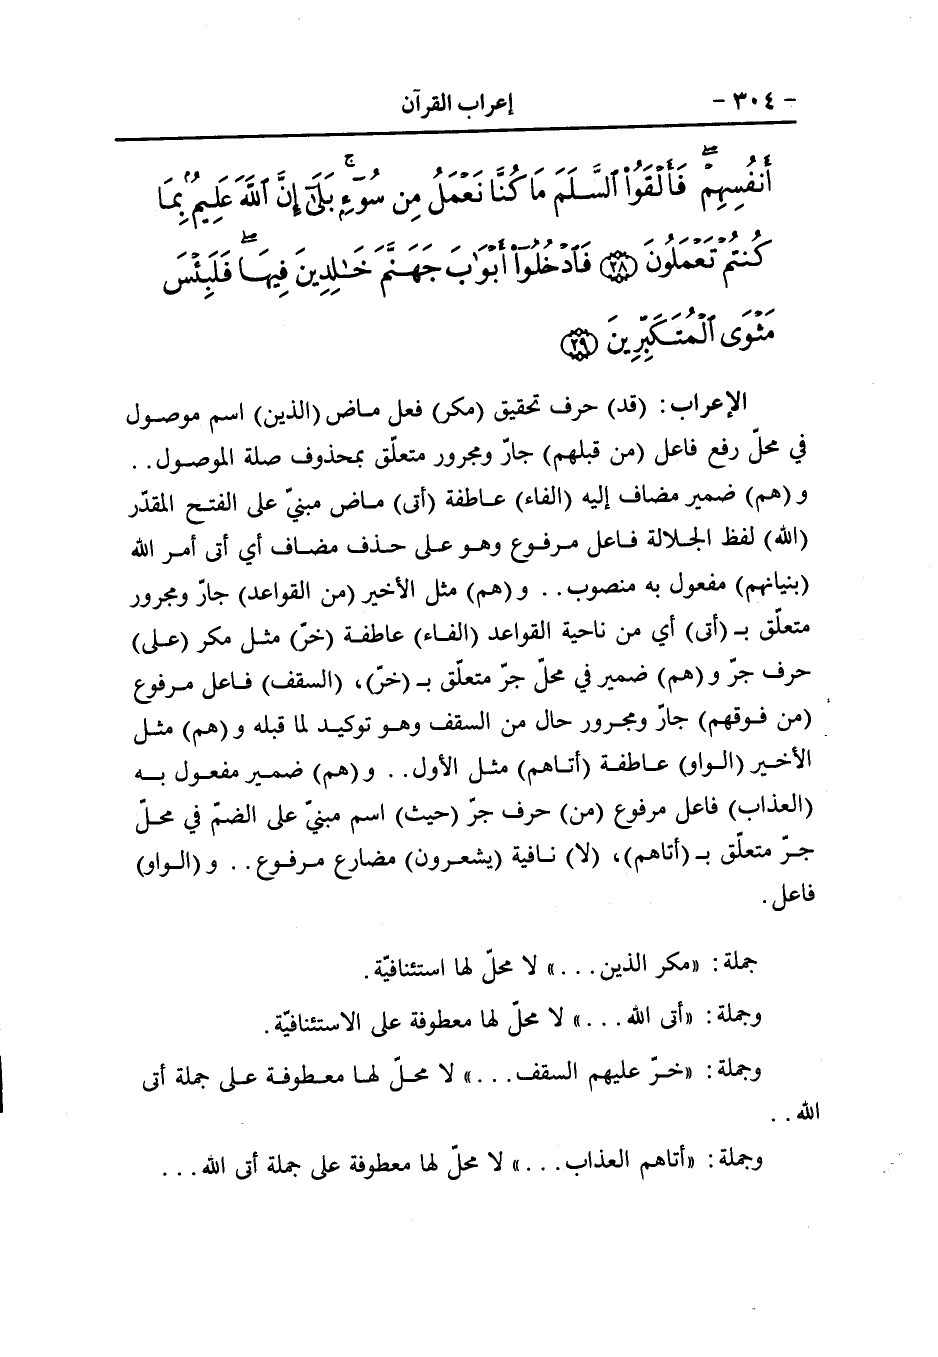 - ٣٠٤ - إعراب القرآن
أَنفُسِهِمْ ۖ فَأَلْقَوُا۟ ٱلسَّلَمَ مَا كُنَّا نَعْمَلُ مِن سُوٓءٍۭ ۚ بَلَىٰٓ إِنَّ ٱللَّهَ عَلِيمٌۢ بِمَا
كُنتُمْ تَعْمَلُونَ ﴿٢٨﴾ فَٱدْخُلُوٓا۟ أَبْوَٰبَ جَهَنَّمَ خَـٰلِدِينَ فِيهَا ۖ فَلَبِئْسَ
مَثْوَى ٱلْمُتَكَبِّرِينَ ﴿٢٩﴾
الإعراب: (قد) حرف تحقيق (مكر) فعل ماض (الذين) اسم موصول
في محلّ رفع فاعل (من قبلهم) جارّ ومجرور متعلّق بمحذوف صلة الموصول . .
و (هم) ضمير مضاف إليه (الفاء) عاطفة (أتى) ماض مبنيّ على الفتح المقدّر
(الله) لفظ الجلالة فاعل مرفوع وهو على حذف مضاف أي أتى أمر الله
(بنيانهم) مفعول به منصوب . . و (هم) مثل الأخير (من القواعد) جارّ ومجرور
متعلّق بـ (أتى) أي من ناحية القواعد (الفاء) عاطفة (خرّ) مثل مكر (على)
حرف جرّ و (هم) ضمير في محلّ جرّ متعلّق بـ (خرّ)، (السقف) فاعل مرفوع
(من فوقهم) جارّ ومجرور حال من السقف وهو توكيد لما قبله و (هم) مثل
الأخير (الواو) عاطفة (أتاهم) مثل الأول . . و (هم) ضمير مفعول به
(العذاب) فاعل مرفوع (من) حرف جرّ (حيث) اسم مبنيّ على الضمّ في محلّ
جرّ متعلّق بـ (أتاهم)، (لا) نافية (يشعرون) مضارع مرفوع . . و (الواو)
فاعل .
جملة: «مكر الذين . . .» لا محلّ لها استئنافيّة .
وجملة: «أتى الله . . .» لا محلّ لها معطوفة على الاستئنافيّة .
وجملة: «خرّ عليهم السقف . . .» لا محلّ لها معطوفة على جملة أتى
الله . .
وجملة: «أتاهم العذاب . . .» لا محلّ لها معطوفة على جملة أتى الله . . .